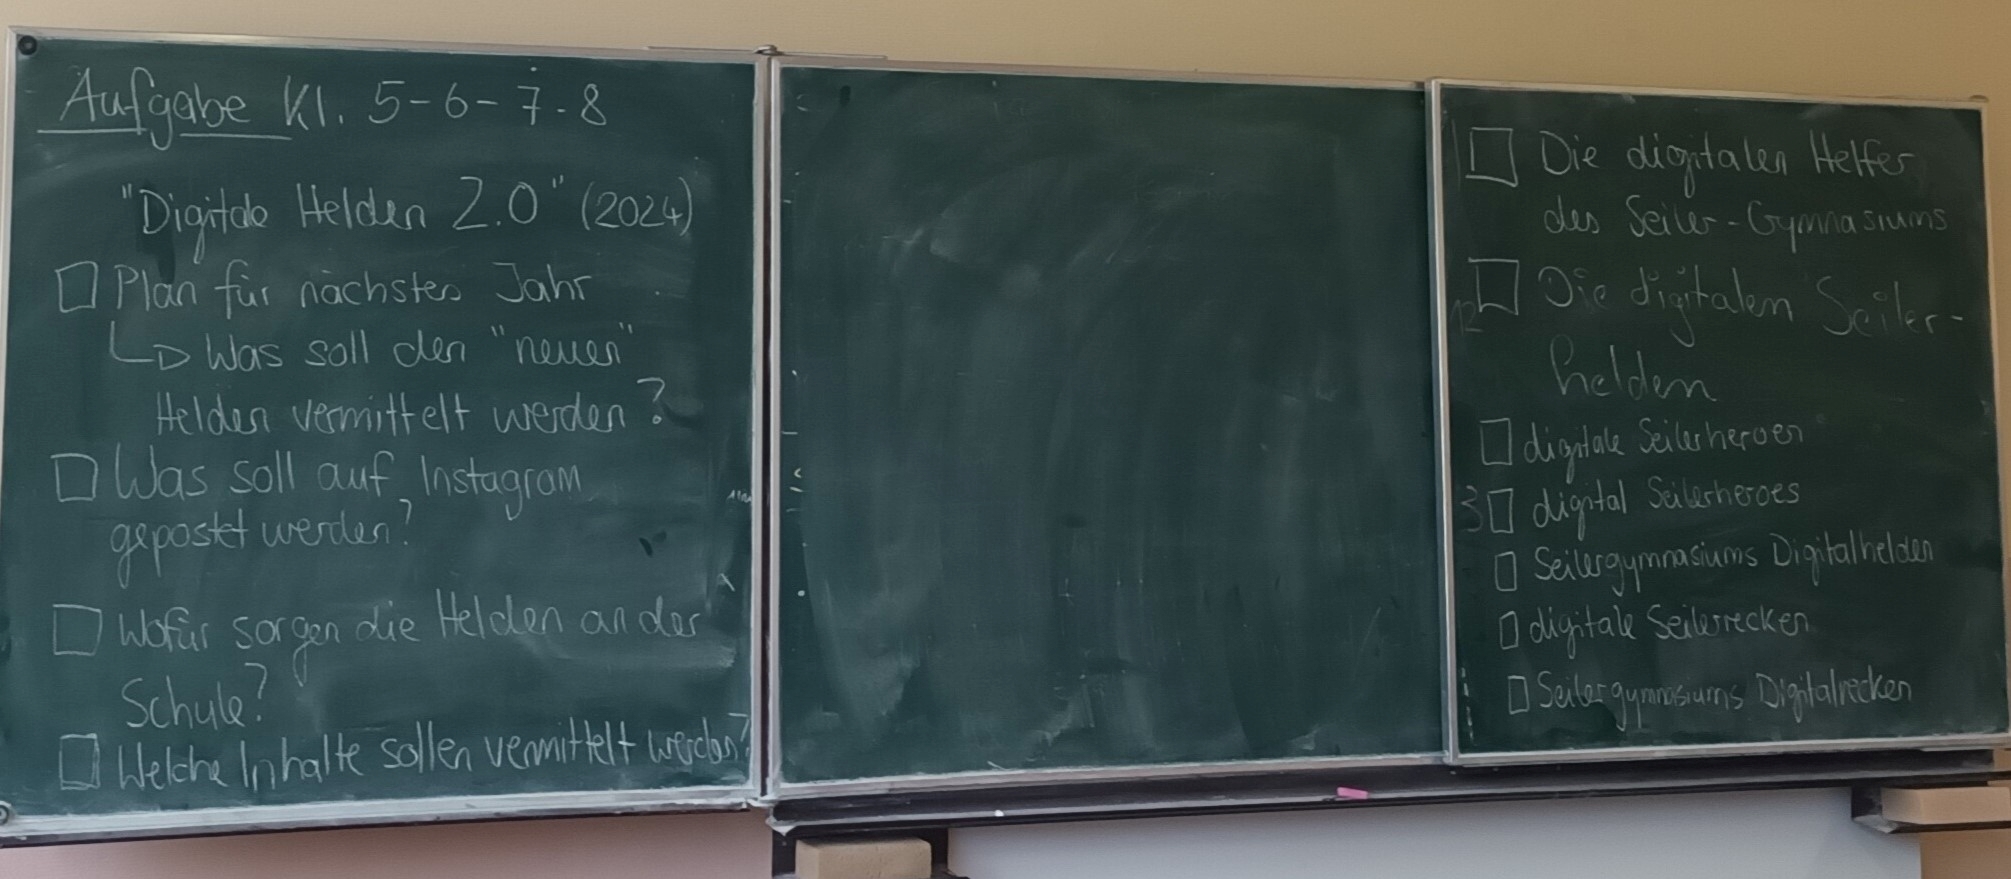 Aufgabe Kl. 5-6-7-8
"Digitale Helden 2.0" (2024)
☐ Plan für nächstes Jahr
↳ Was soll den "neuen"
Helden vermittelt werden?
☐ Was soll auf Instagram
gepostet werden?
☐ Wofür sorgen die Helden an der
Schule?
☐ Welche Inhalte sollen vermittelt werden?
☐ Die digitalen Helfer
des Seiler-Gymnasiums
☐ Die digitalen Seiler-
helden
☐ digitale Seilerheroen
3 ☐ digital Seilerheroes
☐ Seilergymnasiums Digitalhelden
☐ digitale Seilerrecken
☐ Seilergymnasiums Digitalrecken